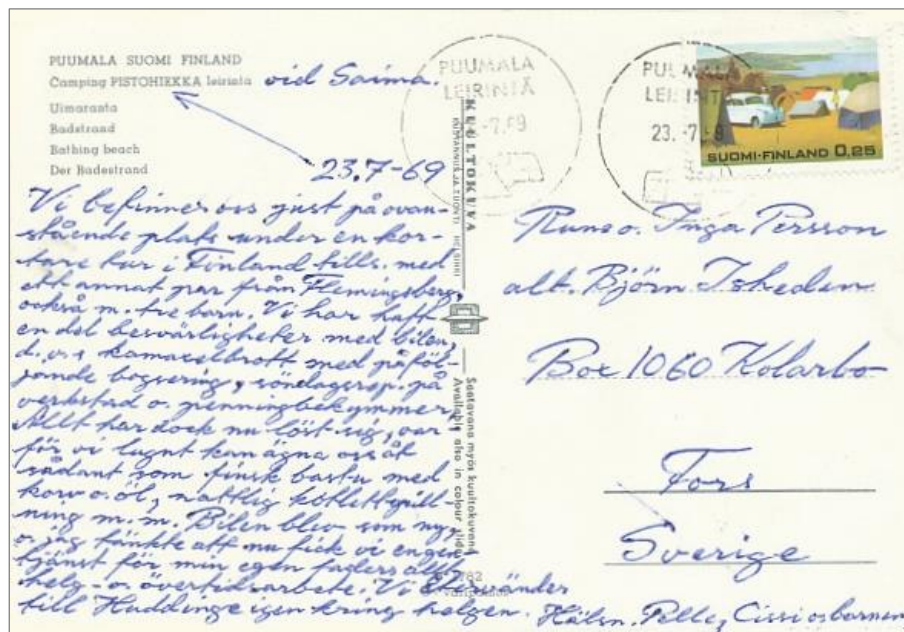 PUUMALA SUOMI FINLAND
Camping PISTOHIEKKA leirintä vid Saima.
Uimaranta
Badstrand
Bathing beach
Der Badestrand
23.7-69
Vi befinner oss just på ovan-
stående plats under en kor-
tare tur i Finland tills. med
ett annat par från Flemingsberg,
också m. tre barn. Vi har haft
en del besvärligheter med bilen,
d.v.s kamaxelbrott med påföl-
jande bogsering, söndagsrep. på
verkstad o. penningbekymmer,
Allt har dock nu löst sig, var-
för vi lugnt kan ägna oss åt
sådant som finsk bastu med
korv o. öl, nattlig kotlettgrill-
ning m.m. Bilen blev som ny,
o. jag tänkte att nu fick vi en gen-
tjänst för min egen faders allt
helg- o. övertidsarbete. Vi återvänder
till Huddinge igen kring helgen. Hälsn. Pelle, Cissi o sbarnen
KUULTOKUVA
KUSTANNUS JA TUONTI HELSINKI
Saatavana myös kuultokuvana
Available also in colour slides
PUUMALA
LEIRINTÄ
-7.69
PUUMALA
LEIRINTÄ
23.-7.69
SUOMI-FINLAND 0,25
Rune o. Inga Persson
alt. Björn Iskeden
Box 1060 Kolarbo
Fors
Sverige